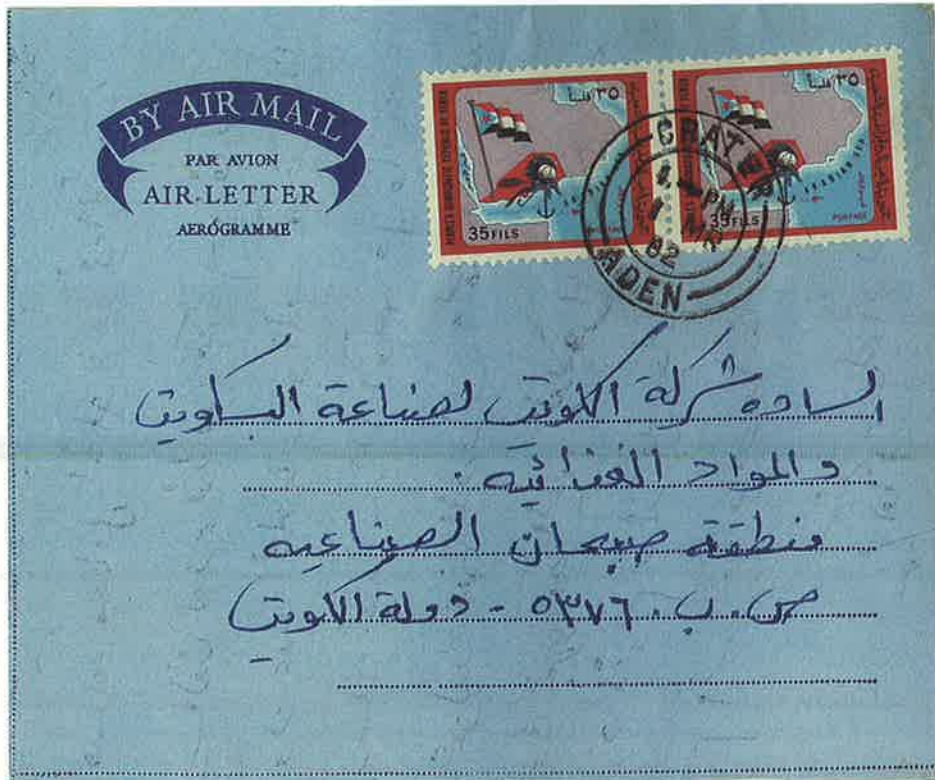 BY AIR MAIL
PAR AVION
AIR LETTER
AEROGRAMME
٣٥ فلسا
35 FILS
POSTAGE
٣٥ فلسا
35 FILS
ARABIAN SEA
POSTAGE
CRATER
PM
82
ADEN
الساده شركة الكويت لصناعة البسكويت
والمواد الغذائيه .
منطقة صبحان الصناعيه
ص . ب . ٥٣٧٦ - دولة الكويت